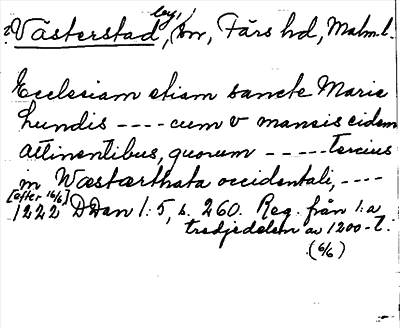 Västerstad, by, sn, Färs hd, Malm. l.
Ecclesiam etiam sancte Marie
Lundis ---- cum v mansis eidem
attinentibus, quorum ----- tercius
in Wæstærthata occidentali, ----
[efter 16/6]
1222 DDan 1:5, s. 260. Reg. från 1:a
tredjedelen av 1200-t.
(6/6)